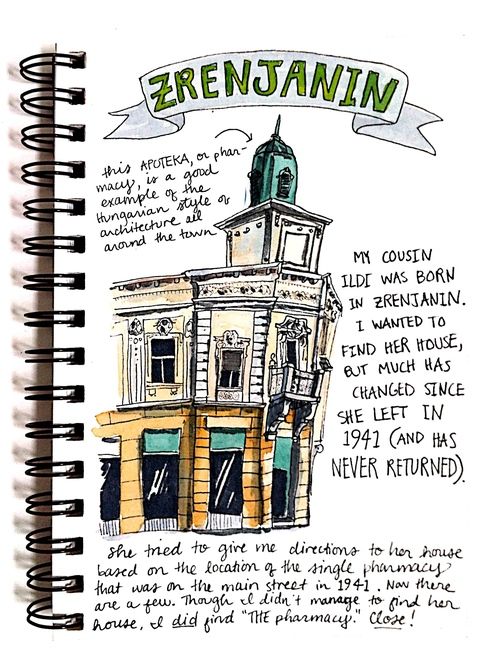 ZRENJANIN
this APOTEKA, or phar-
macy, is a good
example of the
Hungarian style of
architecture all
around the town
MY COUSIN
ILDI WAS BORN
IN ZRENJANIN.
I WANTED TO
FIND HER HOUSE,
BUT MUCH HAS
CHANGED SINCE
SHE LEFT IN
1941 (AND HAS
NEVER RETURNED).
She tried to give me directions to her house
based on the location of the single pharmacy
that was on the main street in 1941. Now there
are a few. Though I didn't manage to find her
house, I did find "THE pharmacy." Close!